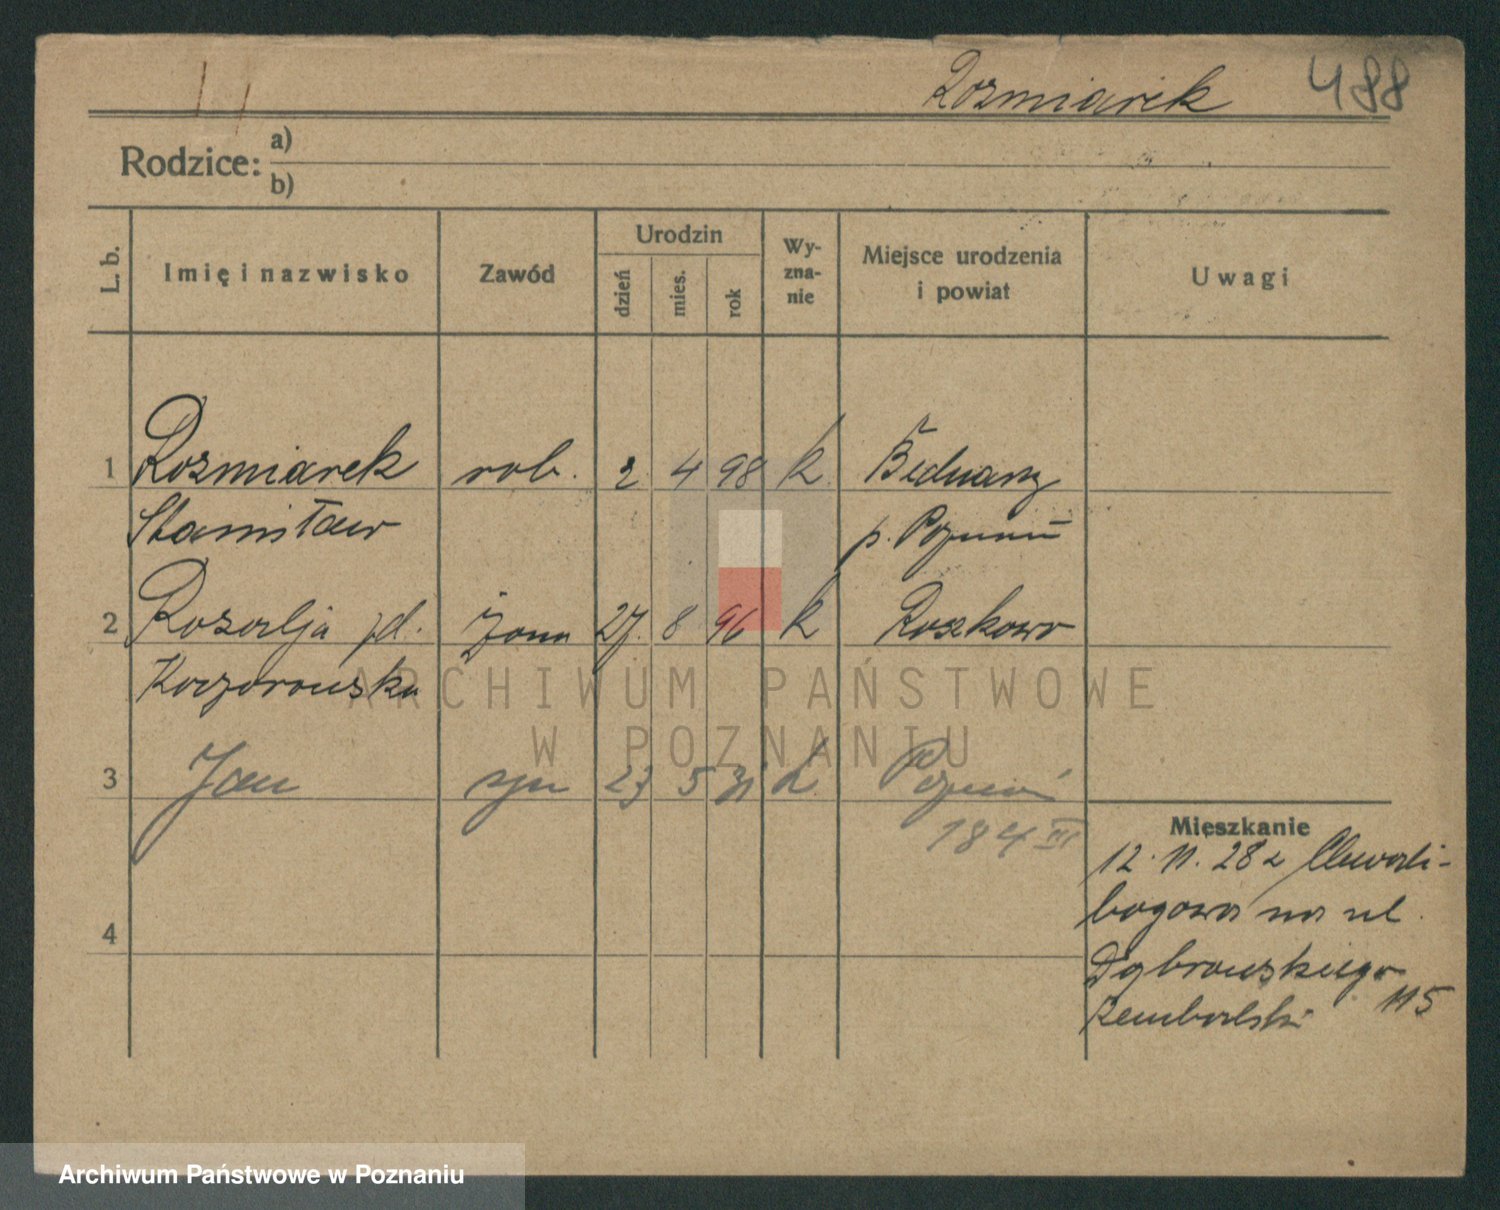 Rozmiarek 488
Rodzice: a)
b)
L. b. Imię i nazwisko Zawód Urodzin dzień mies. rok Wyznanie Miejsce urodzenia i powiat Uwagi
1 Rozmiarek rob. 2 4 98 k Bednary
Stanisław p. Poznań
2 Rozalja zd. żona 27. 8 96 k Roszkowo
Kaczorowska
3 Jan syn 23 5 31 k Poznań
184 III
Mieszkanie
12. 11. 28 z Chwali-
bogowa na ul.
Dąbrowskiego
115
4
ARCHIWUM PAŃSTWOWE
W POZNANIU
Archiwum Państwowe w Poznaniu